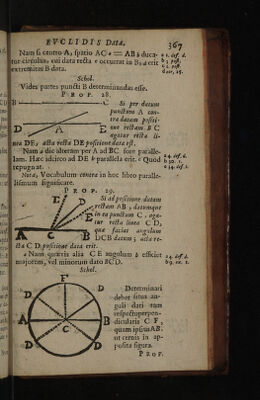 EVCLIDIS DATA. 367
Nam si centro A, spatio AC = AB a duca-
tur circulus, cui data recta occurrat in B, d erit
extremitas B data.
Schol.
Vides partes puncti B determinandas esse.
PROP. 28.
B C
Si per datum
punctum A con-
tra datam positi-
one rectam BC
agatur recta li-
D A E
nea DE; acta recta DE positione data est.
Nam a dic alteram per A ad BC esse paralle-
lam. Hæc idcirco ad DE b parallela erit. c Quod
repugnat.
Nota, Vocabulum contra in hoc libro paralle-
lismum significare.
PROP. 29.
Si ad positione datam
rectam AB, datumque
in ea punctum C. aga-
tur recta linea CD,
quæ faciat angulum
DCB datum; acta re-
E D E
A C B
cta CD positione data erit.
a Nam quævis alia CE angulum b efficiet
majorem, vel minorem dato BCD.
a 4. def. d.
b 9. ax. 1.
Schol.
F
D D
A B
C
D D
E
Determinari
debet situs an-
guli dati tum
respectu perpen-
dicularis CF,
quam ipsius AB,
ut cernis in ap-
posita figura.
PROP.